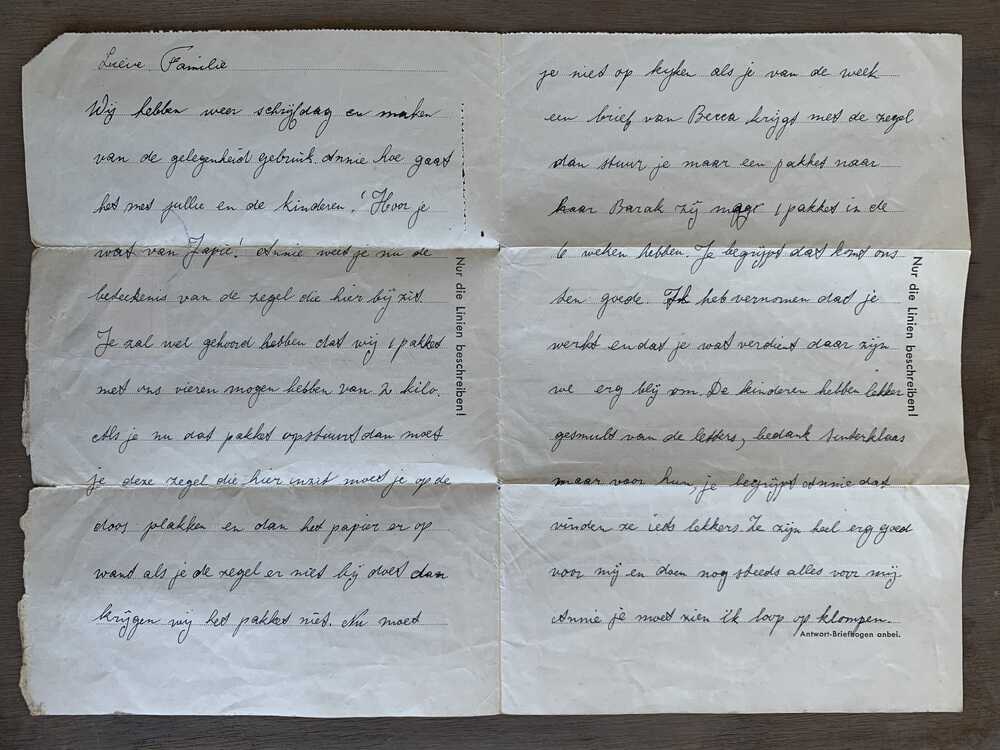 Lieve Familie
Wij hebben weer schrijfdag en maken
van de gelegenheid gebruik. Annie hoe gaat
het met jullie en de kinderen! Hoor je
wat van Japie! Annie weet je nu de
beteekenis van de zegel die hier bij zit.
Je zal wel gehoord hebben dat wij 1 pakket
met ons vieren mogen hebben van 2 kilo.
Als je nu dat pakket opstuurt dan moet
je deze zegel die hier inzit moet je op de
doos plakken en dan het papier er op
want als je de zegel er niet bij doet dan
krijgen wij het pakket niet. Nu moet
Nur die Linien beschreiben!
je niet op kijken als je van de week
een brief van Becca krijgt met de zegel
dan stuur je maar een pakket naar
haar Barak zij mag 1 pakket in de
6 weken hebben. Je begrijpt dat komt ons
ten goede. Ik heb vernomen dat je
werkt en dat je wat verdient daar zijn
we erg blij om. De kinderen hebben lekker
gesmult van de letters, bedank Sinterklaas
maar voor hun, je begrijpt Annie dat
vinden ze iets lekkers. Ze zijn heel erg goed
voor mij en doen nog steeds alles voor mij
Annie je moet zien ik loop op klompen.
Nur die Linien beschreiben!
Antwort-Briefbogen anbei.